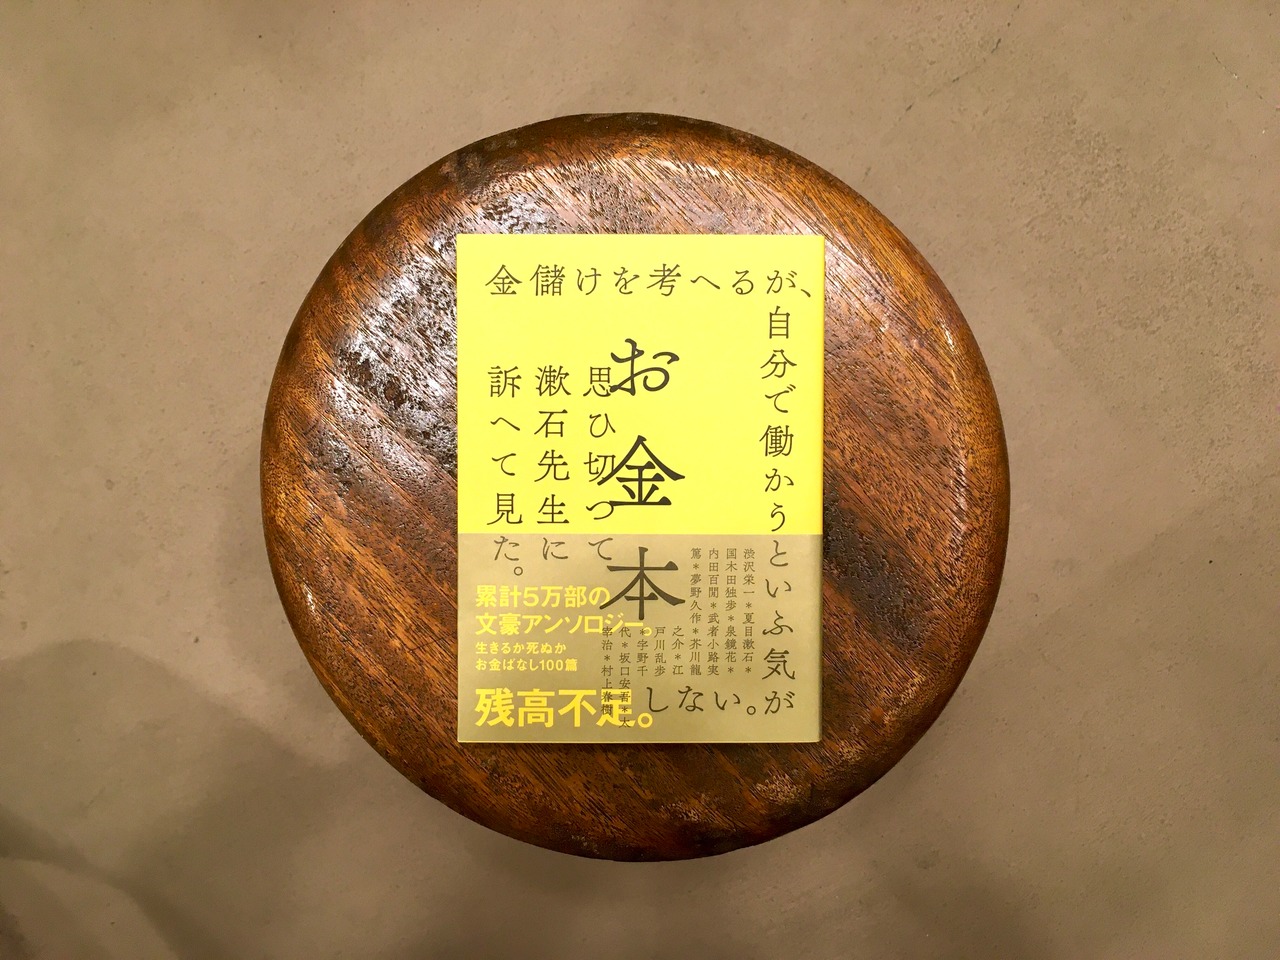 金儲けを考へるが、
自分で働かうといふ気が
しない。
思ひ切つて
漱石先生に
訴へて見た。
お金本
渋沢栄一*夏目漱石*
国木田独歩*泉鏡花*
内田百閒*武者小路実
篤*夢野久作*芥川龍
之介*江
戸川乱歩
*宇野千
代*坂口安吾*太
宰治*村上春樹
累計5万部の
文豪アンソロジー。
生きるか死ぬか
お金ばなし100篇
残高不足。